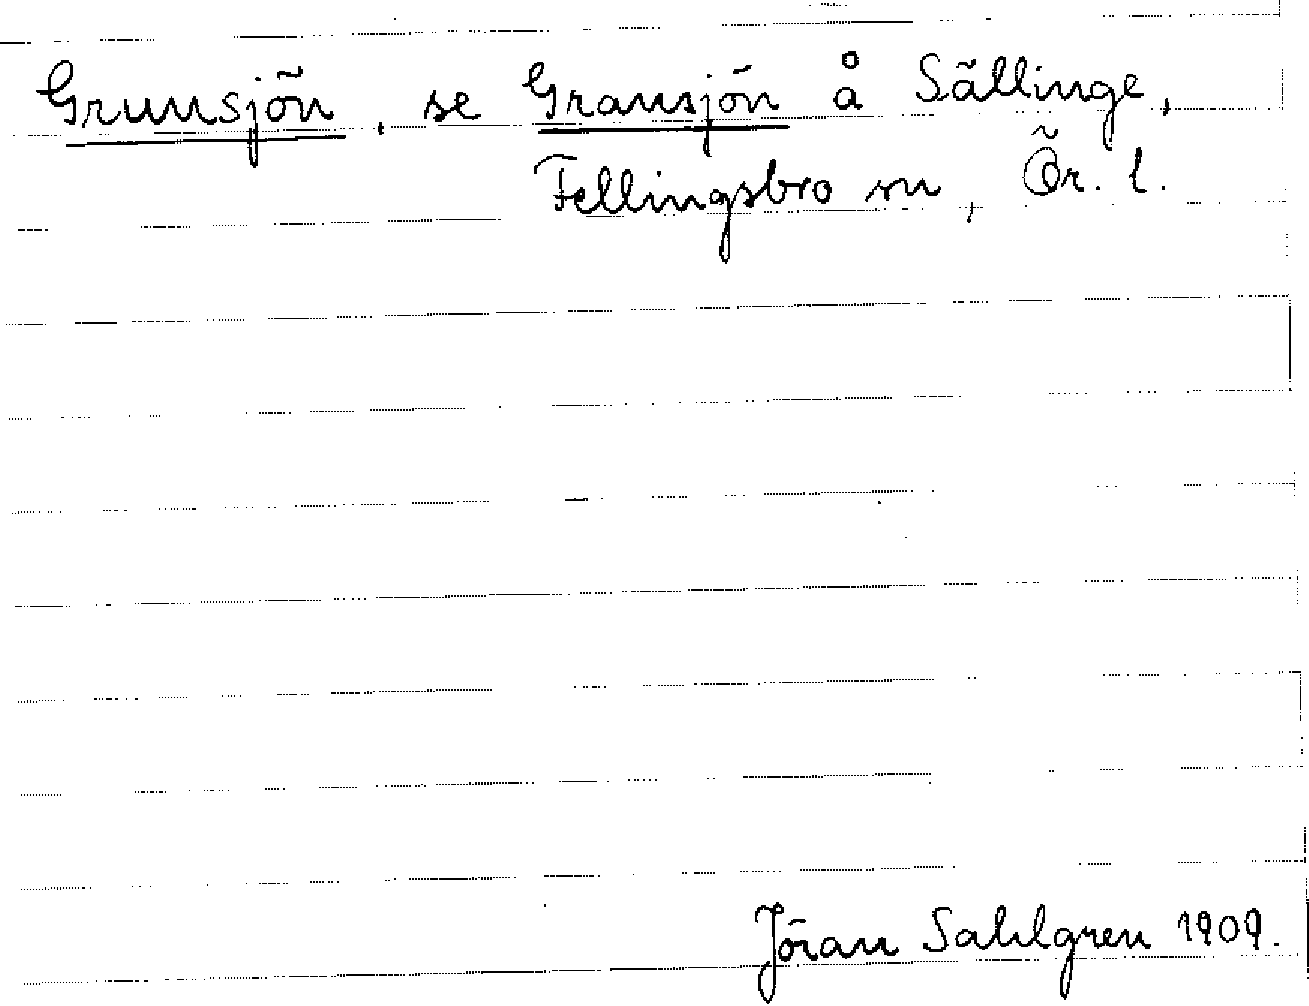 Grunsjön, se Gransjön å Sällinge,
Fellingsbro sn, Ör. l.
Jöran Sahlgren 1909.